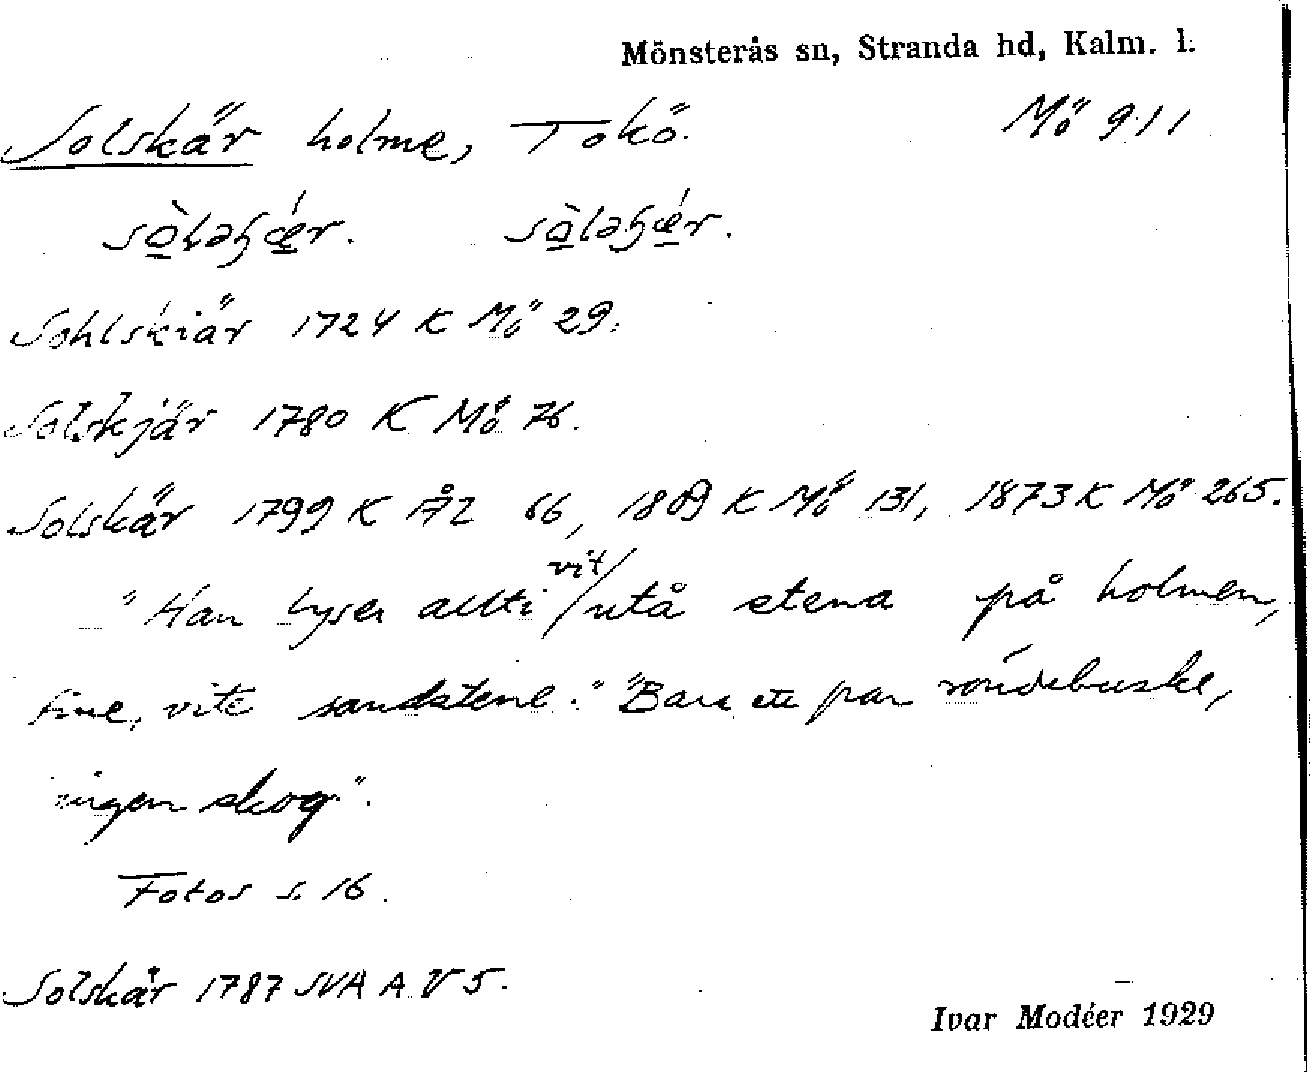 Mönsterås sn, Stranda hd, Kalm. l.
Solskär holme, Tokö. Mö 911
Sohlskiär 1724 K Mö 29.
Solskjär 1780 K Mö 76.
Solskär 1799 K ÅL 66, 1809 K Mö 131, 1873 K Mö 265.
"Han lyser allti vit utå stena på holmen,
fine, vite sandstene." "Bara ett par buske,
ingen skog".
Fotos s. 16.
Solskär 1787 SVA A V 5.
Ivar Modéer 1929